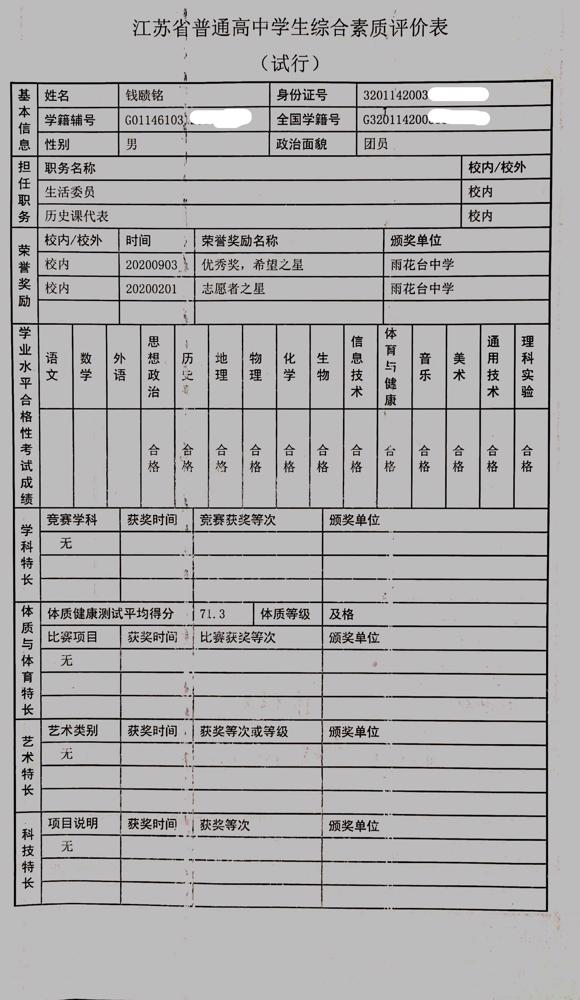 江苏省普通高中学生综合素质评价表
（试行）
基本信息
姓名 钱赜铭 身份证号 3201142003
学籍辅号 G01146103 全国学籍号 G320114200
性别 男 政治面貌 团员
担任职务
职务名称 校内/校外
生活委员 校内
历史课代表 校内
荣誉奖励
校内/校外 时间 荣誉奖励名称 颁奖单位
校内 20200903 优秀奖，希望之星 雨花台中学
校内 20200201 志愿者之星 雨花台中学
学业水平合格性考试成绩
语文 数学 外语 思想政治 历史 地理 物理 化学 生物 信息技术 体育与健康 音乐 美术 通用技术 理科实验
合格 合格 合格 合格 合格 合格 合格 合格 合格 合格 合格 合格
学科特长
竞赛学科 获奖时间 竞赛获奖等次 颁奖单位
无
体质与体育特长
体质健康测试平均得分 71.3 体质等级 及格
比赛项目 获奖时间 比赛获奖等次 颁奖单位
无
艺术特长
艺术类别 获奖时间 获奖等次或等级 颁奖单位
无
科技特长
项目说明 获奖时间 获奖等次 颁奖单位
无